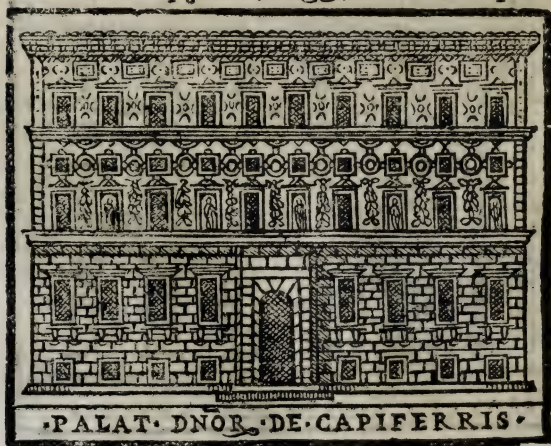 ·PALAT· DNOR̄ ·DE·CAPIFERRIS·